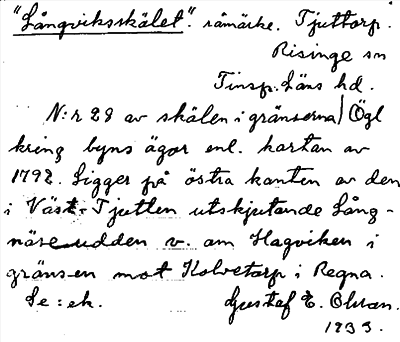 "Långviksskälet". råmärke. Tjuttorp.
Risinge sn
Finsp. Läns hd.
N:r 28 av skälen i gränserna) Ögl
kring byns ägor enl. kartan av
1792. Ligger på östra kanten av den
i Väst-Tjutlen utskjutande Lång-
näsudden v. om Hagviken i
gränsen mot Kolvetorp i Regna.
Se: ek. Gustaf E. Olsson.
1933.